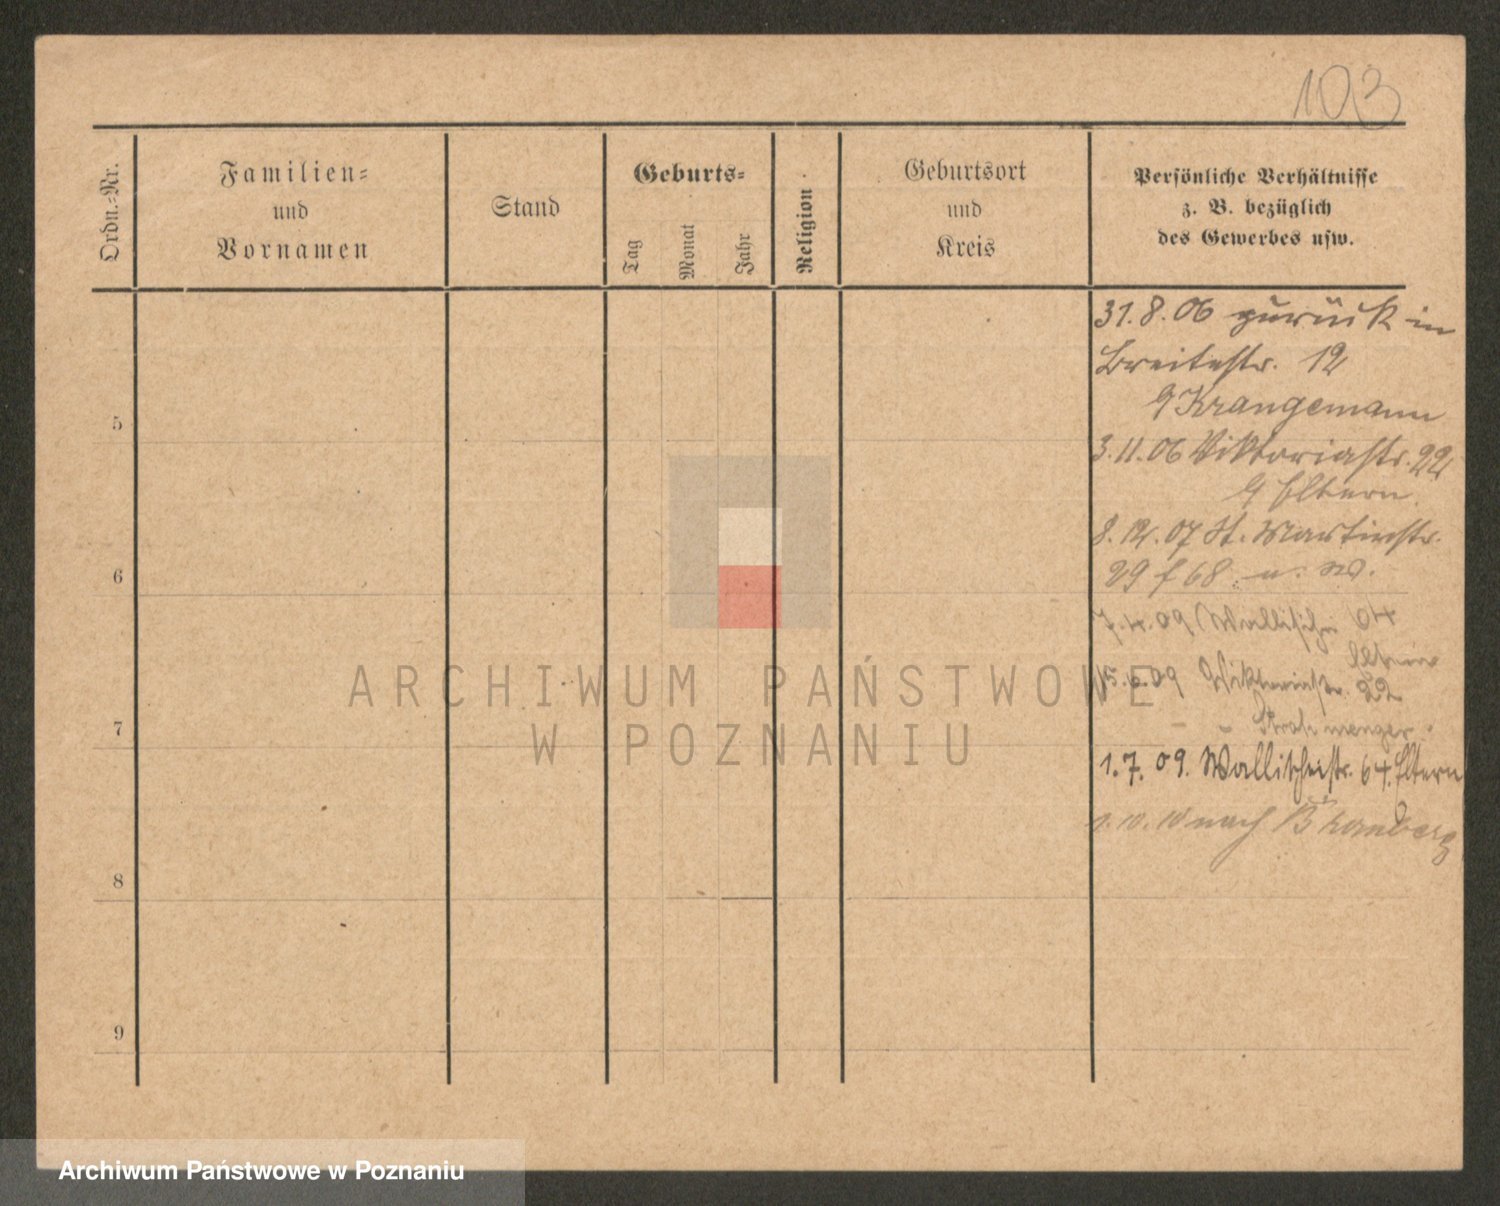 103
Ordn.-Nr.
Familien-
und
Vornamen
Stand
Geburts-
Tag
Monat
Jahr
Religion
Geburtsort
und
Kreis
Persönliche Verhältnisse
z. B. bezüglich
des Gewerbes usw.
31.8.06 zurück in
Breitestr. 12
Krangemann
5
3.11.06 Viktoriastr. 22
Eltern
8.12.07 St. Martinstr.
6
29 f 68
7.4.09 Wallischei 64
Eltern
15.6.09 Viktoriastr. 22
7
1.7.09. Wallischeistr. 64. Eltern
1.10.10 nach
8
9
ARCHIWUM PAŃSTWOWE
W POZNANIU
Archiwum Państwowe w Poznaniu